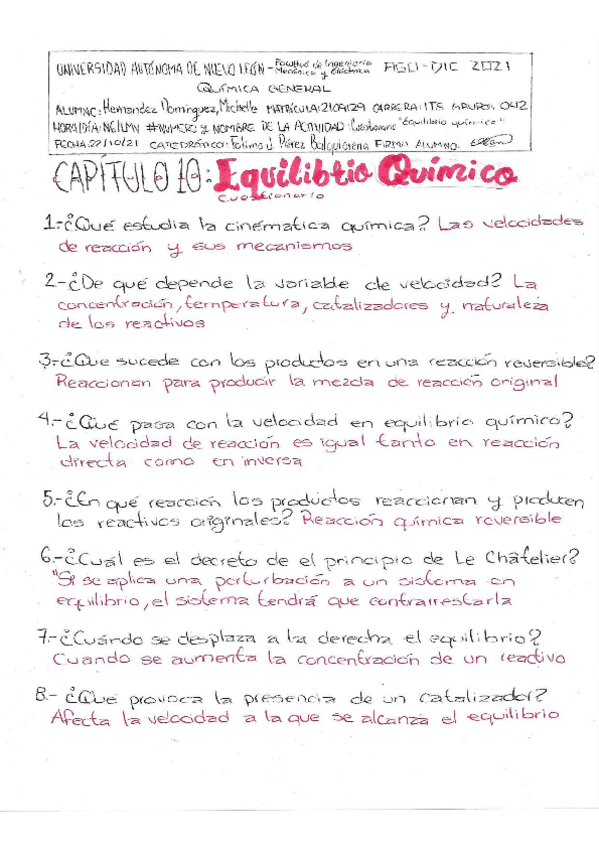 UNIVERSIDAD AUTÓNOMA DE NUEVO LEÓN - Facultad de Ingeniería Mecánica y Eléctrica AGO-DIC 2021
QUÍMICA GENERAL
ALUMNO: Hernandez Dominguez, Michelle MATRÍCULA: 2109129 CARRERA: ITS GRUPO: 042
HORA/DÍA: N6/LMV #NUMERO Y NOMBRE DE LA ACTIVIDAD: Cuestionario "Equilibrio químico"
FECHA: 22/10/21 CATEDRÁTICO: J. Pérez FIRMA ALUMNO:
CAPÍTULO 10: Equilibtio Químico
Cuestionario
1.-¿Qué estudia la cinématica química? Las velocidades
de reacción y sus mecanismos
2.-¿De qué depende la variable de velocidad? La
concentración, temperatura, catalizadores y naturaleza
de los reactivos
3.-¿Que sucede con los productos en una reacción reversible?
Reaccionan para producir la mezcla de reacción original
4.-¿Qué pasa con la velocidad en equilibrio químico?
La velocidad de reacción es igual tanto en reacción
directa como en inversa
5.-¿En qué reacción los productos reaccionan y producen
los reactivos originales? Reacción química reversible
6.-¿Cuál es el decreto de el principio de Le Châtelier?
"Si se aplica una perturbación a un sistema en
equilibrio, el sistema tendrá que contrarrestarla
7.-¿Cuándo se desplaza a la derecha el equilibrio?
Cuando se aumenta la concentración de un reactivo
8.-¿Qué provoca la presencia de un catalizador?
Afecta la velocidad a la que se alcanza el equilibrio